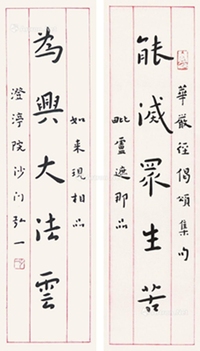 華嚴經偈頌集句
能滅眾生苦
毗盧遮那品
如來現相品
為興大法雲
澄渟院沙门弘一